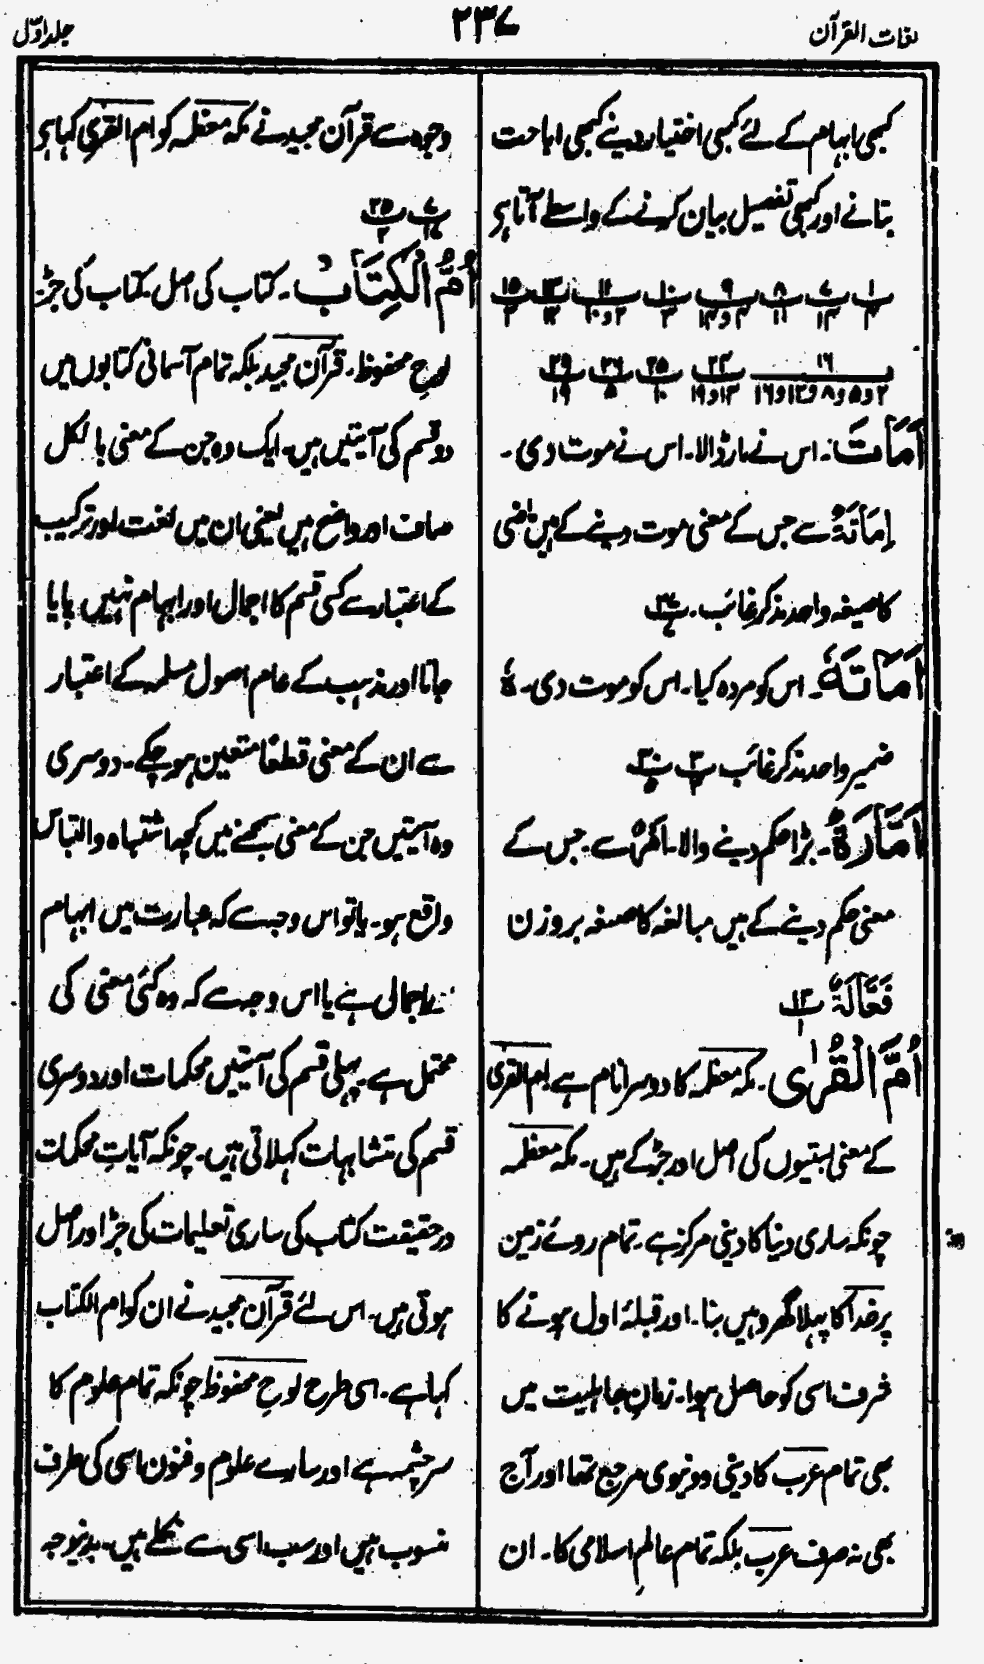 لغات القرآن
۲۳۷
جلد اوّل
کبھی ابہام کے لئے کبھی اختیار دینے کبھی اباحت
بتانے اور کبھی تفصیل بیان کرنے کے واسطے آتا ہر
۱ ۷ ۸ ۹ ۱۰ ۱۱ ۱۳ ۱۵
۴ ۱۴ ۱۱ ۴ و ۱۴ ۳ ۲ و ۱۰ ۱۲ ۲
۱۶ ۲۲ ۲۵ ۲۶ ۲۹
۲ و ۵ و ۸ و ۱۲ و ۱۶ ۱۳ و ۱۹ ۱۰ ۵ ۱۹
اَمَاتَ۔ اس نے مار ڈالا۔ اس نے موت دی۔
اِمَاتَۃٌ سے جس کے معنی موت دینے کے ہیں ماضی
کا صیغہ واحد مذکر غائب۔
اَمَاتَہٗ۔ اس کو مردہ کیا۔ اس کو موت دی۔ ہٗ
ضمیر واحد مذکر غائب
اَمَّارَۃٌ۔ بڑا حکم دینے والا۔ اَمْرٌ سے جس کے
معنی حکم دینے کے ہیں مبالغہ کا صیغہ بروزن
فَعَّالَۃٌ
اُمَّ الْقُرٰی۔ مکہ معظمہ کا دوسرا نام ہے ام القریٰ
کے معنی بستیوں کی اصل اور جڑ کے ہیں۔ مکہ معظمہ
چونکہ ساری دنیا کا دینی مرکز ہے۔ تمام روئے زمین
پر خدا کا پہلا گھر وہیں بنا۔ اور قبلۂ اول ہونے کا
شرف اسی کو حاصل ہوا۔ زمانِ جاہلیت میں
بھی تمام عرب کا دینی و دنیوی مرجع تھا اور آج
بھی نہ صرف عرب بلکہ تمام عالم اسلامی کا۔ ان
وجوہ سے قرآن مجید نے مکہ معظمہ کو ام القریٰ کہا ہر
۷ ۲۵
۱۷ ۲
اُمُّ الْکِتَابِ۔ کتاب کی اصل۔ کتاب کی جڑ۔
لوحِ محفوظ۔ قرآن مجید بلکہ تمام آسمانی کتابوں میں
دو قسم کی آیتیں ہیں۔ ایک وہ جن کے معنی بالکل
صاف اور واضح ہیں یعنی ان میں لغت اور ترکیب
کے اعتبار سے کسی قسم کا اجمال اور ابہام نہیں پایا
جاتا اور مذہب کے عام اصول مسلمہ کے اعتبار
سے ان کے معنی قطعًا متعین ہو چکے۔ دوسری
وہ آیتیں جن کے معنی سمجھنے میں کچھ اشتباہ والتباس
واقع ہو۔ یا تو اس وجہ سے کہ عبارت میں ابہام
و اجمال ہے یا اس وجہ سے کہ وہ کئی معنی کی
محتمل ہے۔ پہلی قسم کی آیتیں محکمات اور دوسری
قسم کی متشابہات کہلاتی ہیں۔ چونکہ آیاتِ محکمات
درحقیقت کتاب کی ساری تعلیمات کی جڑ اور اصل
ہوتی ہیں۔ اس لئے قرآن مجید نے ان کو ام الکتاب
کہا ہے۔ اسی طرح لوحِ محفوظ چونکہ تمام علوم کا
سرچشمہ ہے اور سارے علوم و فنون اسی کی طرف
منسوب ہیں اور سب اسی سے نکلے ہیں۔ بدینوجہ